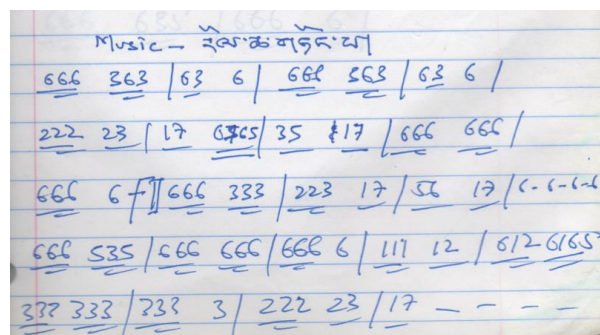 Music —
666 363 | 63 6 | 666 363 | 63 6 |
222 23 | 17 | 35 17 | 666 666 |
666 6 - || 666 333 | 223 17 | 56 17 | 6-6-6-6
666 535 | 666 666 | 666 6 | 111 12 | 612 6165
333 333 | 333 3 | 222 23 | 17 — — — —